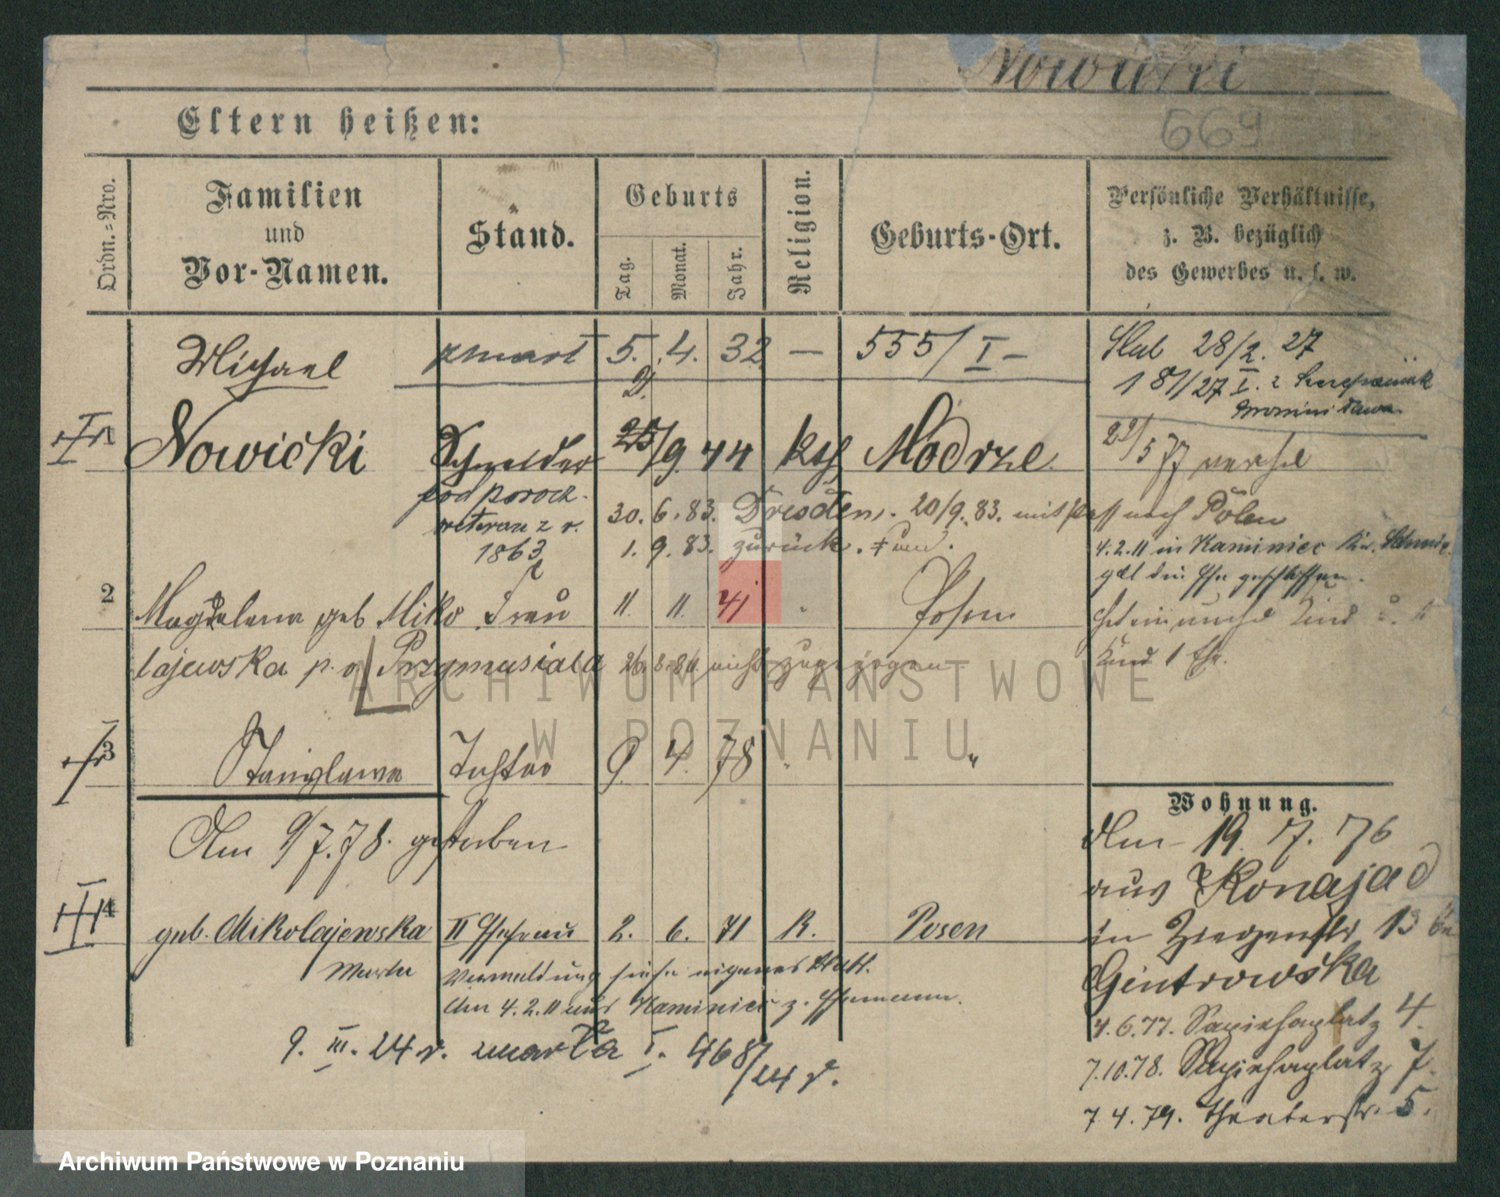 Nowicki
669
Eltern heißen:
Ordn.=Nro.
Familien
und
Vor-Namen.
Stand.
Geburts
Tag.
Monat.
Jahr.
Religion.
Geburts-Ort.
Persönliche Verhältnisse,
z. B. bezüglich
des Gewerbes u. s. w.
Michael zmarł 5. 4. 32 — 555/I — 28/2. 27
181/27 I.
1 Nowicki Schneider 9 44 kth Modrze
pod poroch. 30. 6. 83. Dresden. 20/9. 83. nach Polen
weteran z r. 1. 9. 83. zurück. 4.2.11 in Kaminiec
1863
2 Magdalena geb Miko Frau 11. 11. 41 Posen
lajewska p. o Przymusiala 26. 8. 84 nicht zugezogen
Kind 1 Ehe.
3 Stanislawa Tochter 9. 4. 78 "
Am 9/7.78. gestorben
4 geb. Mikolajewska II Ehefrau 2. 6. 71 K. Posen
Marta siehe eigenes Blatt.
Am 4.2.11 aus Kaminiec z. Ehemann.
9. III. 24 r. zmarła I. 468/24 r.
Wohnung.
Am 19. 7. 76
aus Konajad
in Ziegenstr 13 bei
Gintrowska
4.6.77. Sapiehaplatz 4.
7.10.78. Sapiehaplatz 7.
7 4. 79. Theaterstr. 5.
ARCHIWUM PAŃSTWOWE
W POZNANIU
Archiwum Państwowe w Poznaniu